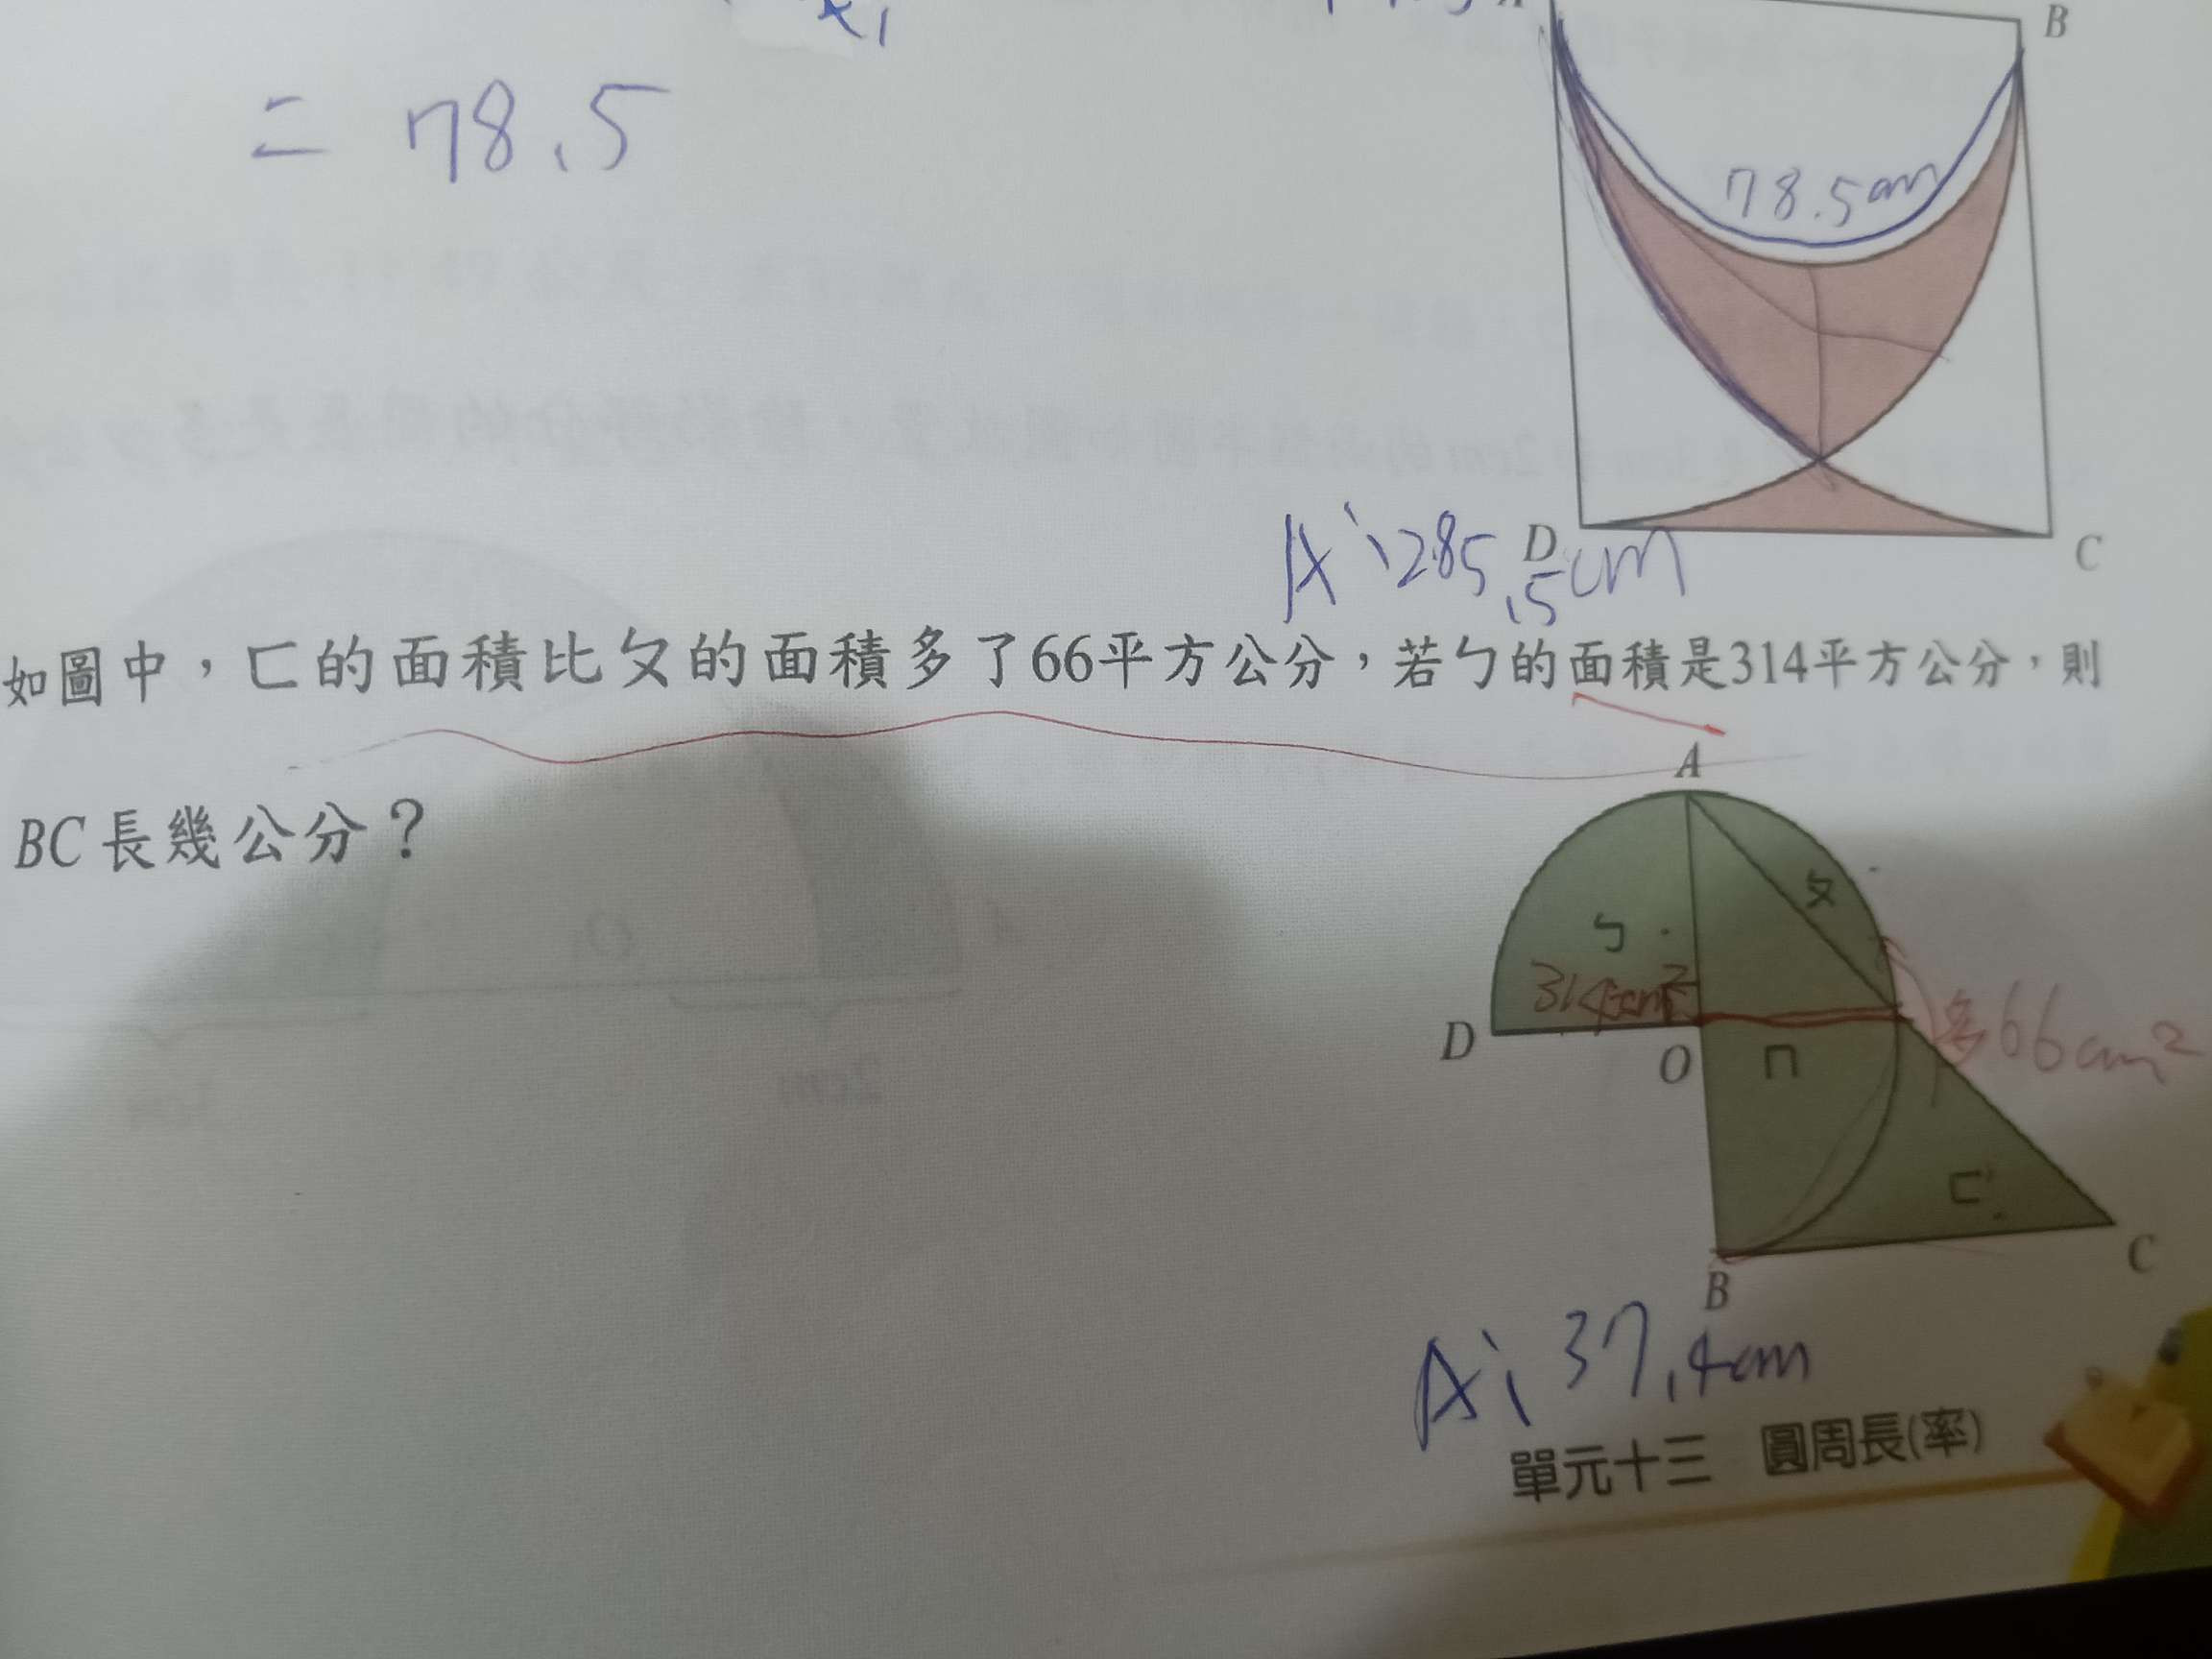 = 78.5
B
78.5cm
D
C
A:285.5cm
如圖中，ㄈ的面積比ㄆ的面積多了66平方公分，若ㄅ的面積是314平方公分，則
BC長幾公分？
A
ㄅ
ㄆ
314cm²
多66cm²
D
O
ㄇ
ㄈ
B
C
A:37.4cm
單元十三 圓周長(率)